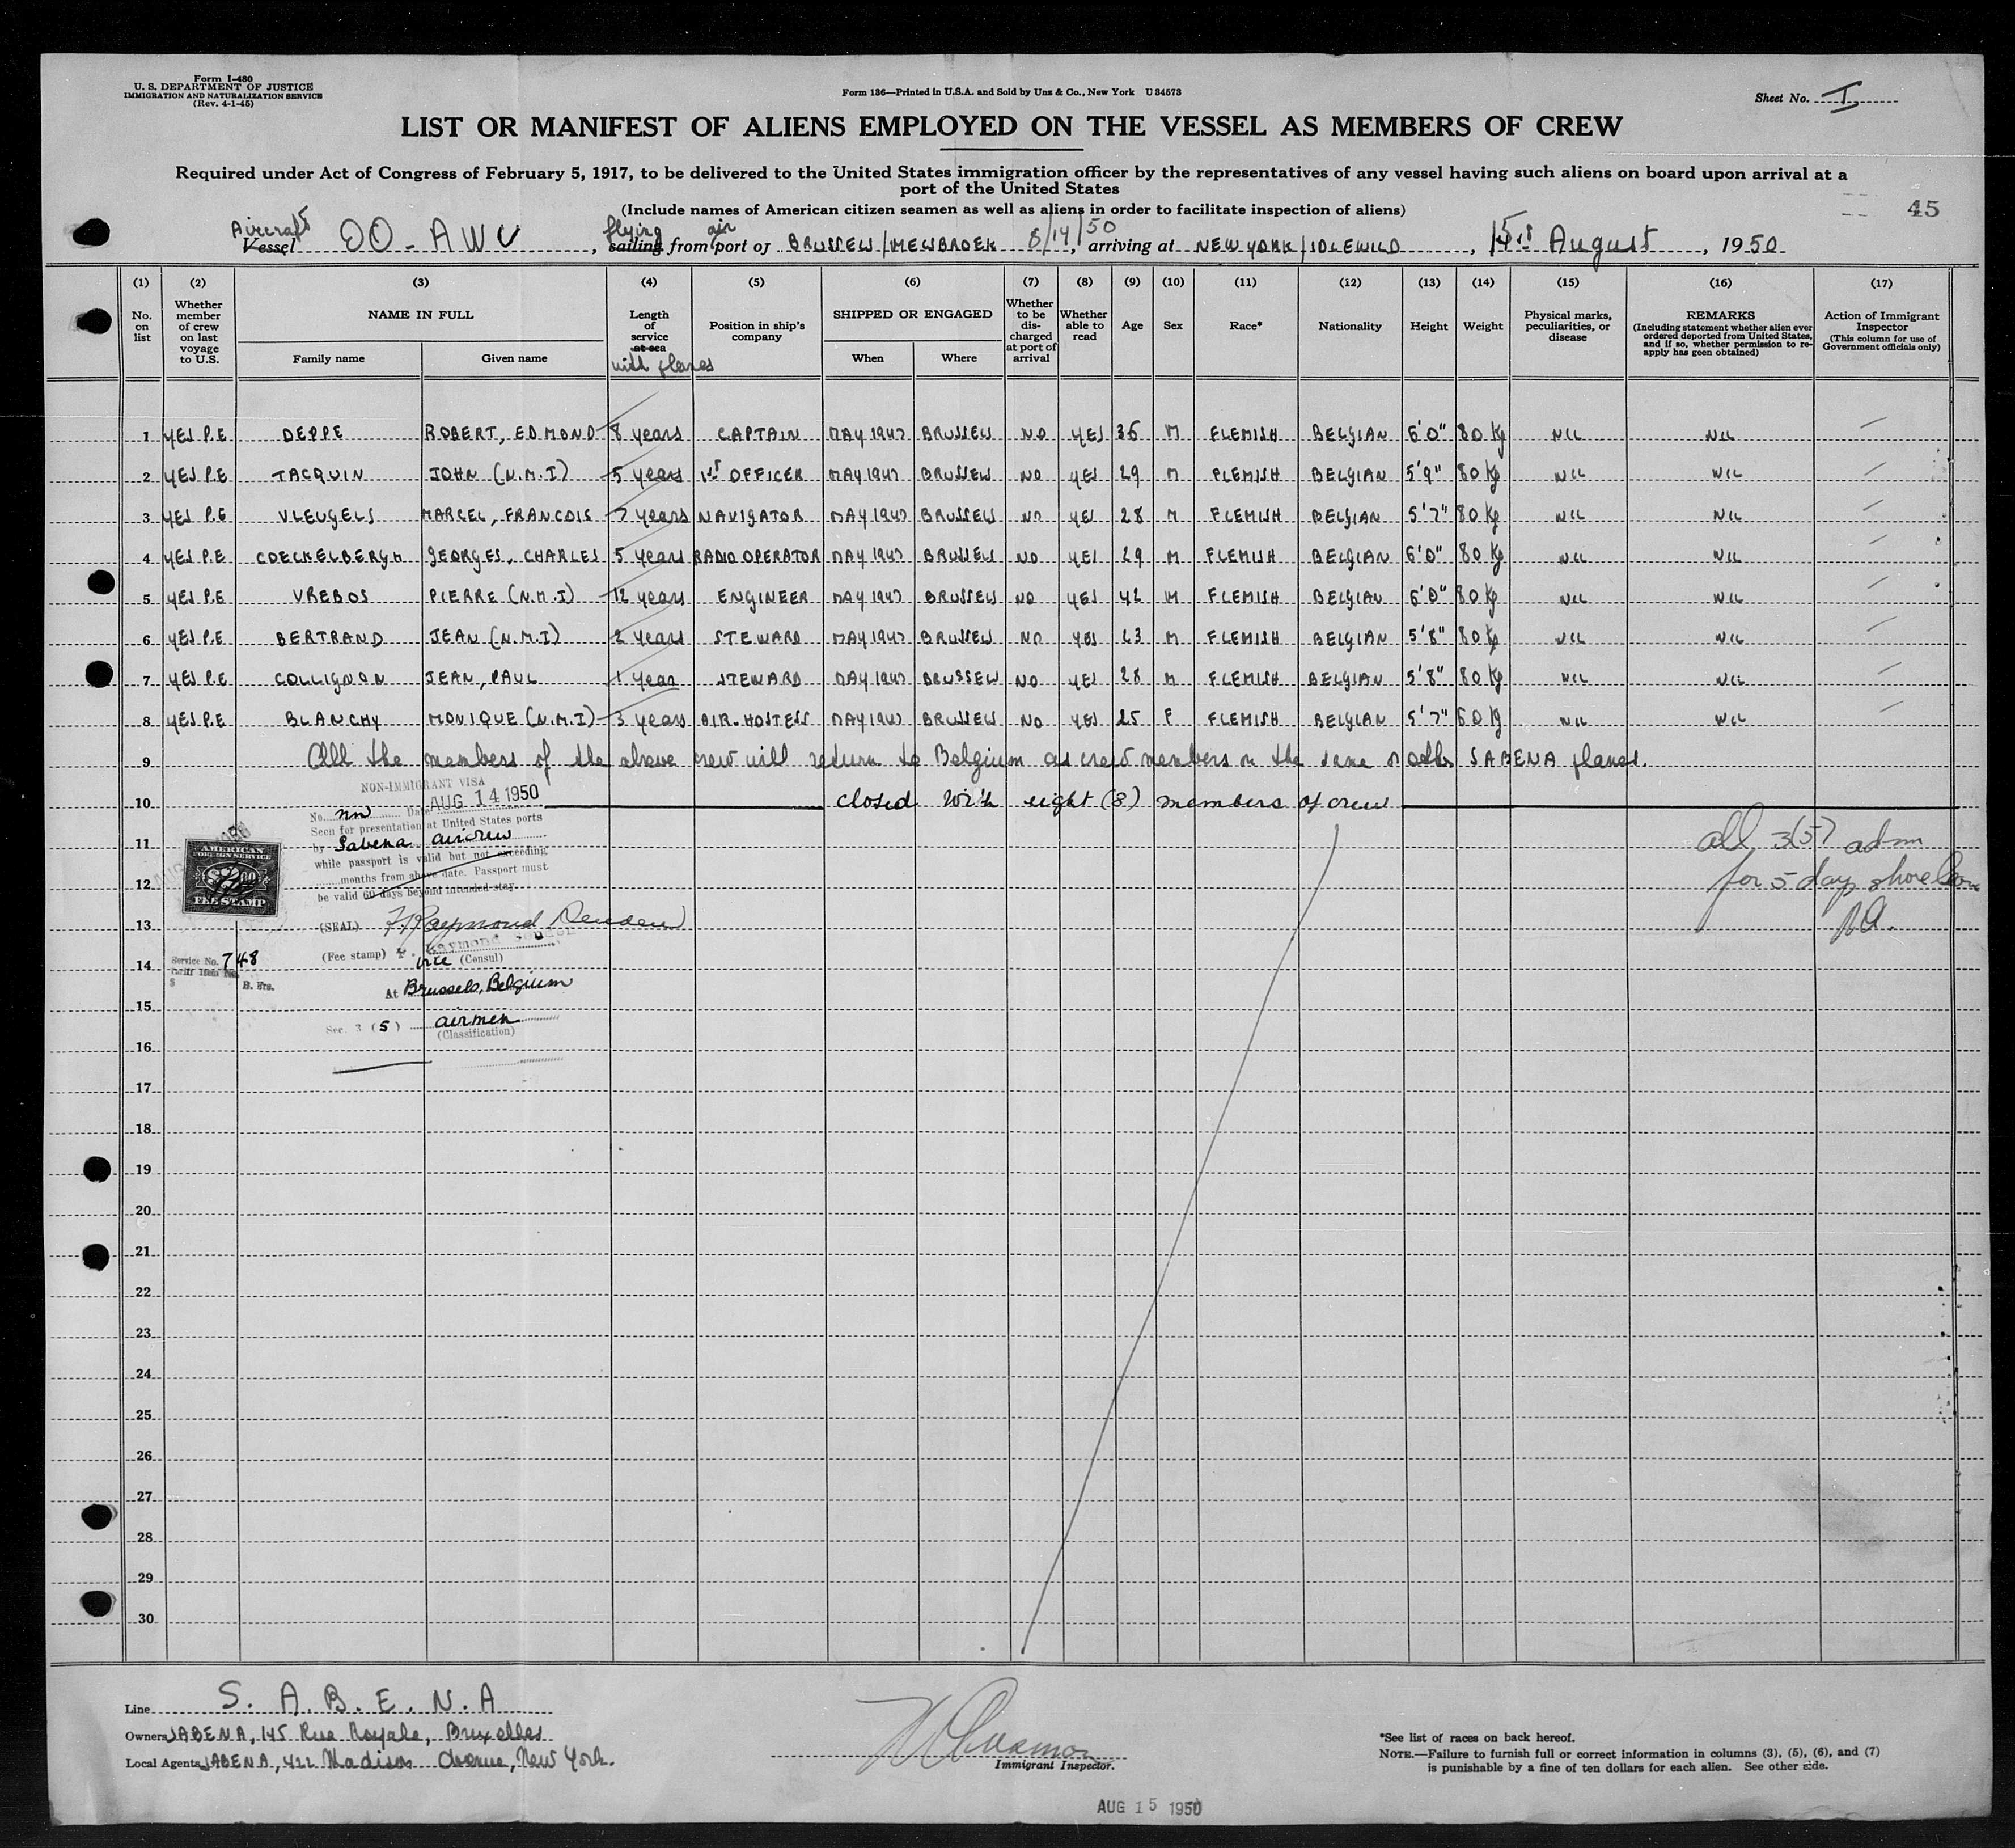 Form I-480
U. S. DEPARTMENT OF JUSTICE
IMMIGRATION AND NATURALIZATION SERVICE
(Rev. 4-1-45)
Form 136—Printed in U.S.A. and Sold by Unz & Co., New York U 34573
Sheet No. I
LIST OR MANIFEST OF ALIENS EMPLOYED ON THE VESSEL AS MEMBERS OF CREW
Required under Act of Congress of February 5, 1917, to be delivered to the United States immigration officer by the representatives of any vessel having such aliens on board upon arrival at a
port of the United States
(Include names of American citizen seamen as well as aliens in order to facilitate inspection of aliens)
45
Aircraft flying air
Vessel OO-AWV, sailing from port of BRUSSELS/MELSBROEK 8/14/50, arriving at NEW YORK/IDLEWILD, 15 August, 1950
(1) (2) (3) (4) (5) (6) (7) (8) (9) (10) (11) (12) (13) (14) (15) (16) (17)
No. on list
Whether member of crew on last voyage to U.S.
NAME IN FULL
Family name Given name
Length of service at sea with planes
Position in ship's company
SHIPPED OR ENGAGED
When Where
Whether to be discharged at port of arrival
Whether able to read
Age
Sex
Race*
Nationality
Height
Weight
Physical marks, peculiarities, or disease
REMARKS
(Including statement whether alien ever ordered deported from United States, and if so, whether permission to re-apply has geen obtained)
Action of Immigrant Inspector
(This column for use of Government officials only)
1 YES P.E DEPPE ROBERT, EDMOND 8 years CAPTAIN MAY 1947 BRUSSELS NO YES 36 M FLEMISH BELGIAN 6'0" 80 Kg NIL NIL
2 YES P.E TACQUIN JOHN (N.M.I) 5 years 1st OFFICER MAY 1947 BRUSSELS NO YES 29 M FLEMISH BELGIAN 5'9" 80 Kg NIL NIL
3 YES P.E VLEUGELS MARCEL, FRANCOIS 7 years NAVIGATOR MAY 1947 BRUSSELS NO YES 28 M FLEMISH BELGIAN 5'7" 80 Kg NIL NIL
4 YES P.E COECKELBERGH GEORGES, CHARLES 5 years RADIO OPERATOR MAY 1947 BRUSSELS NO YES 29 M FLEMISH BELGIAN 6'0" 80 Kg NIL NIL
5 YES P.E VREBOS PIERRE (N.M.I) 12 years ENGINEER MAY 1947 BRUSSELS NO YES 42 M FLEMISH BELGIAN 6'0" 80 Kg NIL NIL
6 YES P.E BERTRAND JEAN (N.M.I) 2 years STEWARD MAY 1947 BRUSSELS NO YES 23 M FLEMISH BELGIAN 5'8" 80 Kg NIL NIL
7 YES P.E COLLIGNON JEAN, PAUL 1 year STEWARD MAY 1947 BRUSSELS NO YES 28 M FLEMISH BELGIAN 5'8" 80 Kg NIL NIL
8 YES P.E BLANCHY MONIQUE (N.M.I) 3 years AIR-HOSTESS MAY 1947 BRUSSELS NO YES 25 F FLEMISH BELGIAN 5'7" 60 Kg NIL NIL
9 All the members of the above crew will return to Belgium as crew members on the same or other SABENA planes.
10 closed with eight (8) members of crew
NON-IMMIGRANT VISA
No. nn Date AUG 14 1950
Seen for presentation at United States ports
by Sabena aircrew
while passport is valid but not exceeding
months from above date. Passport must
be valid 60 days beyond intended stay.
(SEAL)
(Fee stamp)
vice (Consul)
At Brussels, Belgium
Sec. 3 (5) airmen
(Classification)
AMERICAN
FOREIGN SERVICE
FEE STAMP
Service No. 748
Tariff Item No.
$ B. Frs.
all 3(5) adm
for 5 day shore leave
11
12
13
14
15
16
17
18
19
20
21
22
23
24
25
26
27
28
29
30
Line S. A. B. E. N. A
Owners SABENA, 145 Rue Royale, Bruxelles
Local Agents SABENA, 422 Madison Avenue, New York.
Immigrant Inspector.
AUG 15 1950
*See list of races on back hereof.
NOTE.—Failure to furnish full or correct information in columns (3), (5), (6), and (7)
is punishable by a fine of ten dollars for each alien. See other side.